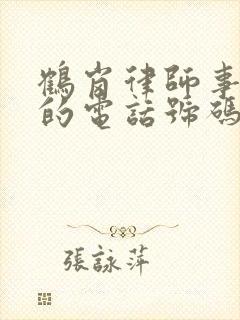 鶴崗律師事
的電話號碼
張詠萍